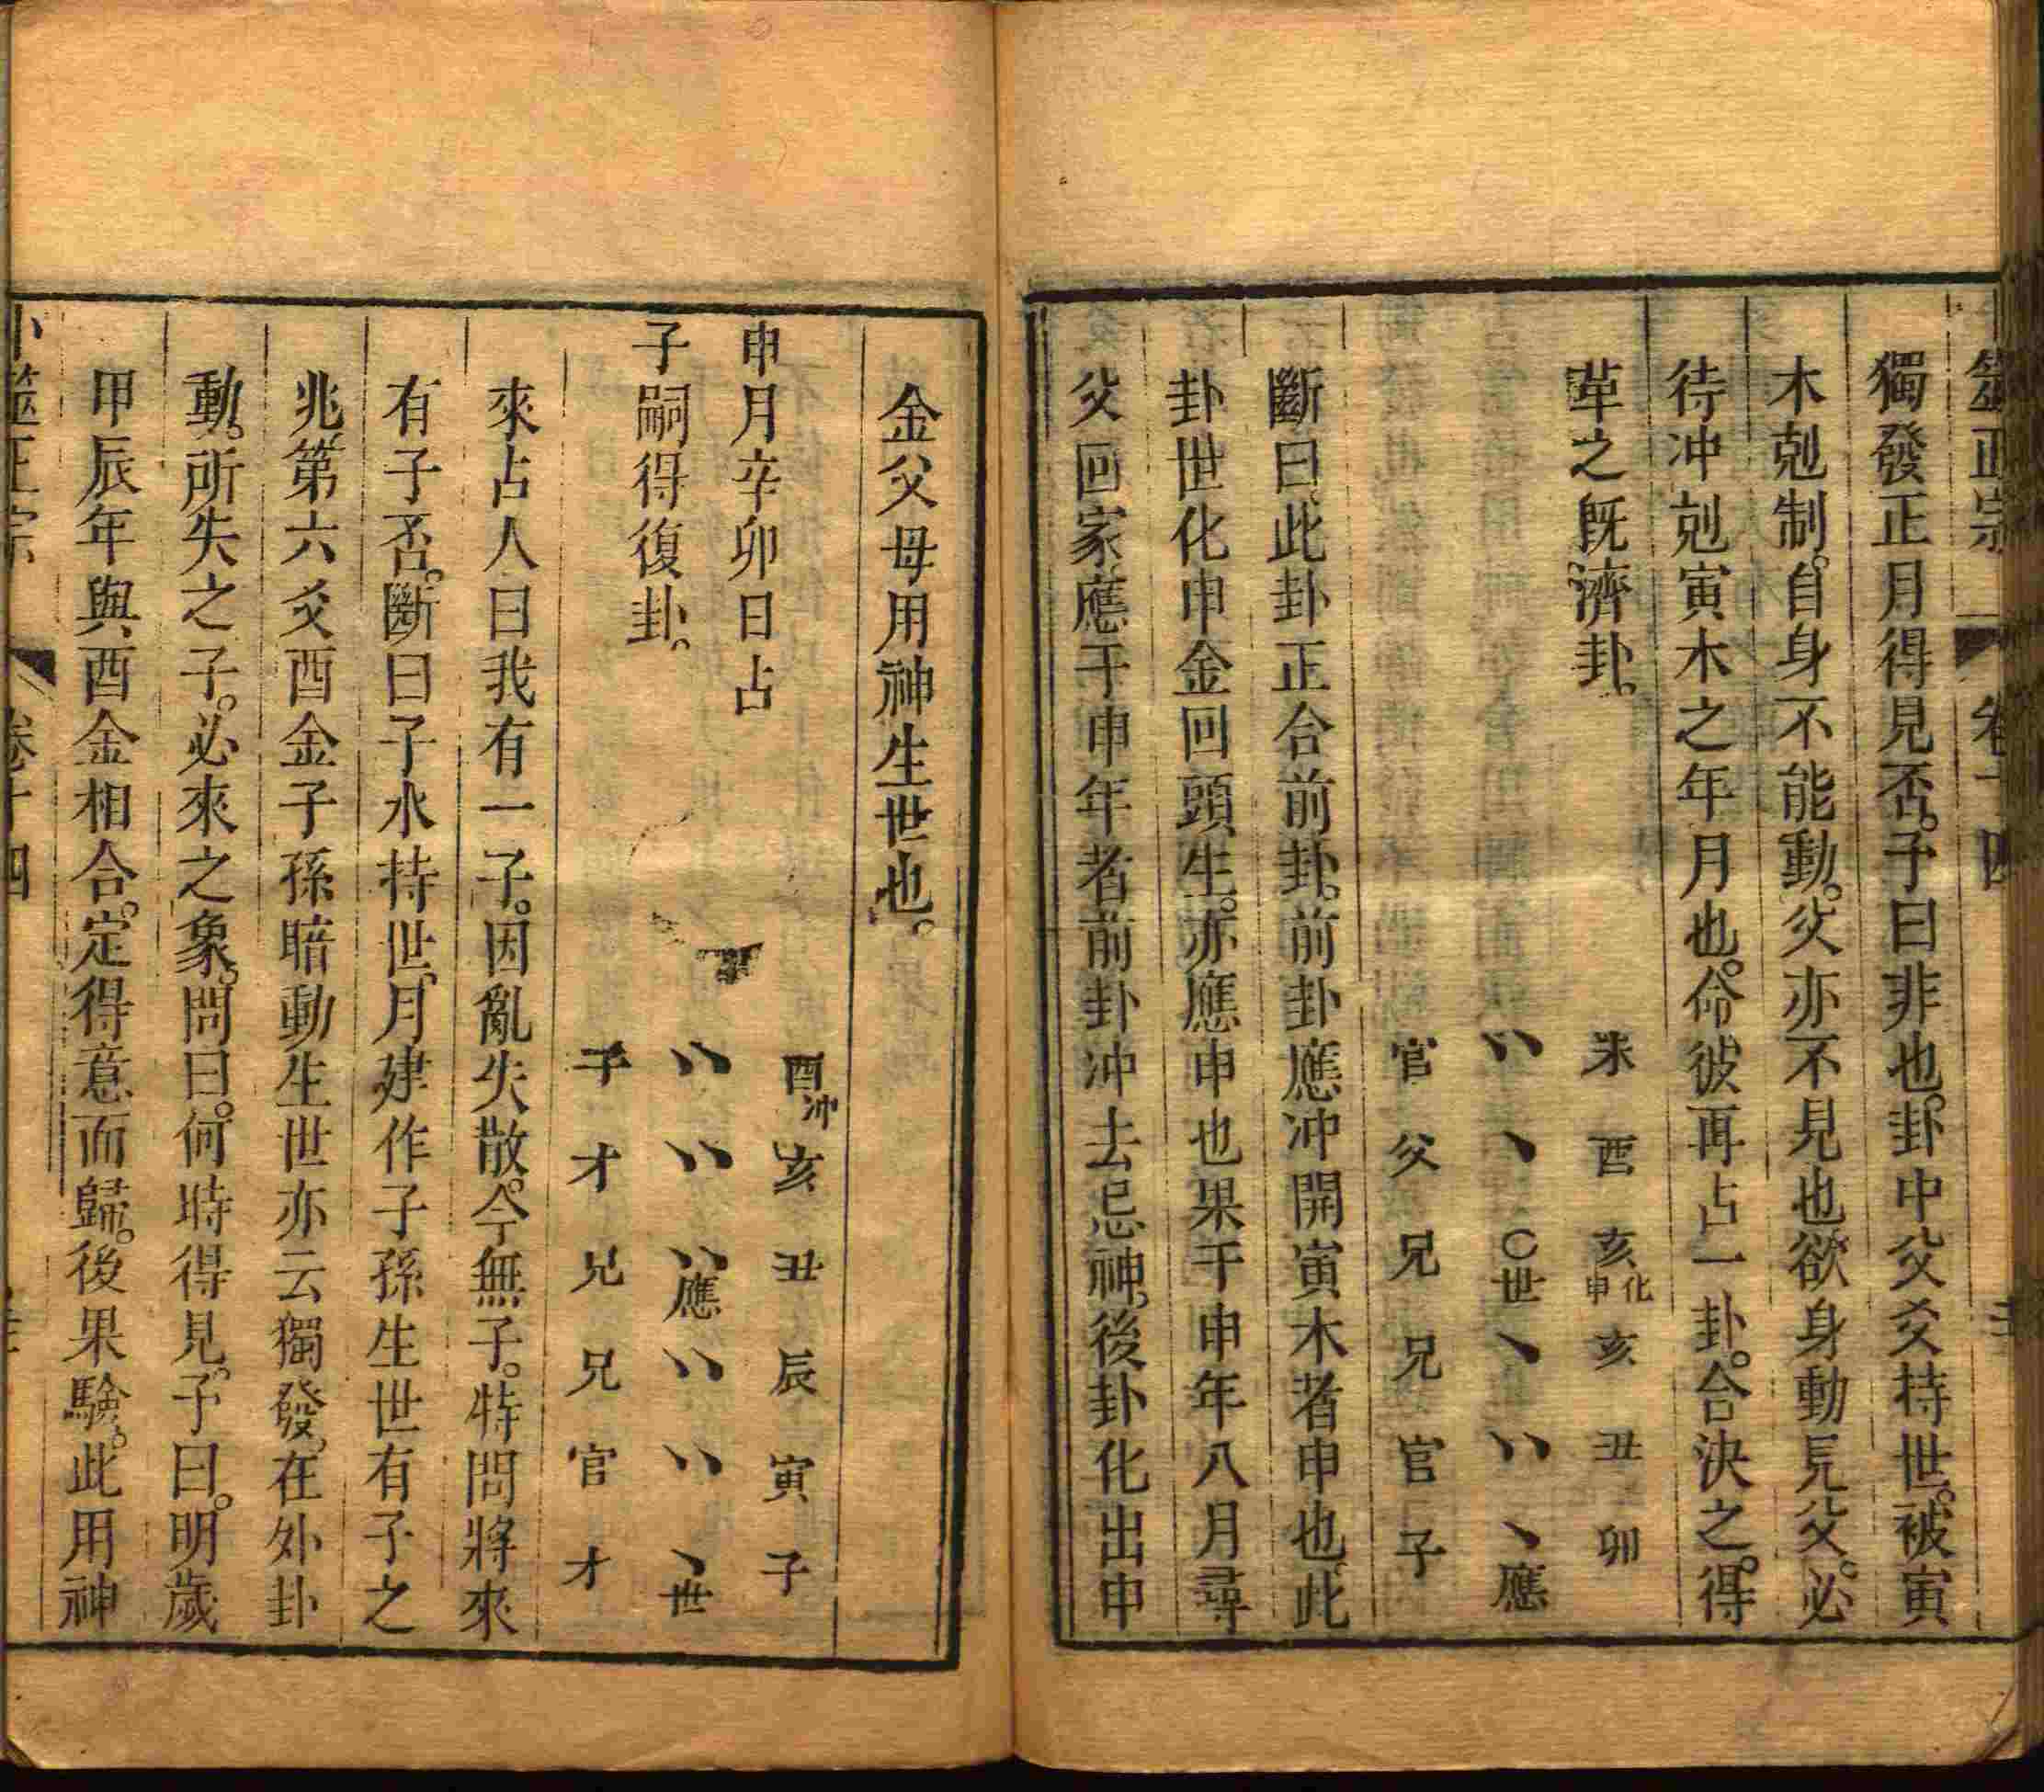 筮正宗 卷十四
獨發正月得見否。予曰非也。卦中父爻持世。被寅
木剋制。自身不能動。父亦不見也欲身動見父。必
待冲剋寅木之年月也。命彼再占一卦。合決之。得
革之既濟卦。
未 酉 亥化申 亥 丑 卯
〃 、 〇世 、 〃 、應
官 父 兄 兄 官 子
斷曰。此卦正合前卦。前卦應冲開寅木者申也。此
卦世化申金回頭生。亦應申也果于申年八月尋
父回家。應于申年者前卦冲去忌神。後卦化出申
金父母用神生世也。
申月辛卯日占
子嗣得復卦。
酉冲 亥 丑 辰 寅 子
〃 〃 〃應 〃 〃 、世
子 才 兄 兄 官 才
來占人曰我有一子。因亂失散。今無子。特問將來
有子否。斷曰子水持世。月建作子孫生世有子之
兆。第六爻酉金子孫暗動生世亦云獨發。在外卦
動。所失之子。必來之象。問曰。何時得見。予曰。明歲
甲辰年與酉金相合。定得意而歸。後果驗。此用神
卜筮正宗 卷十四